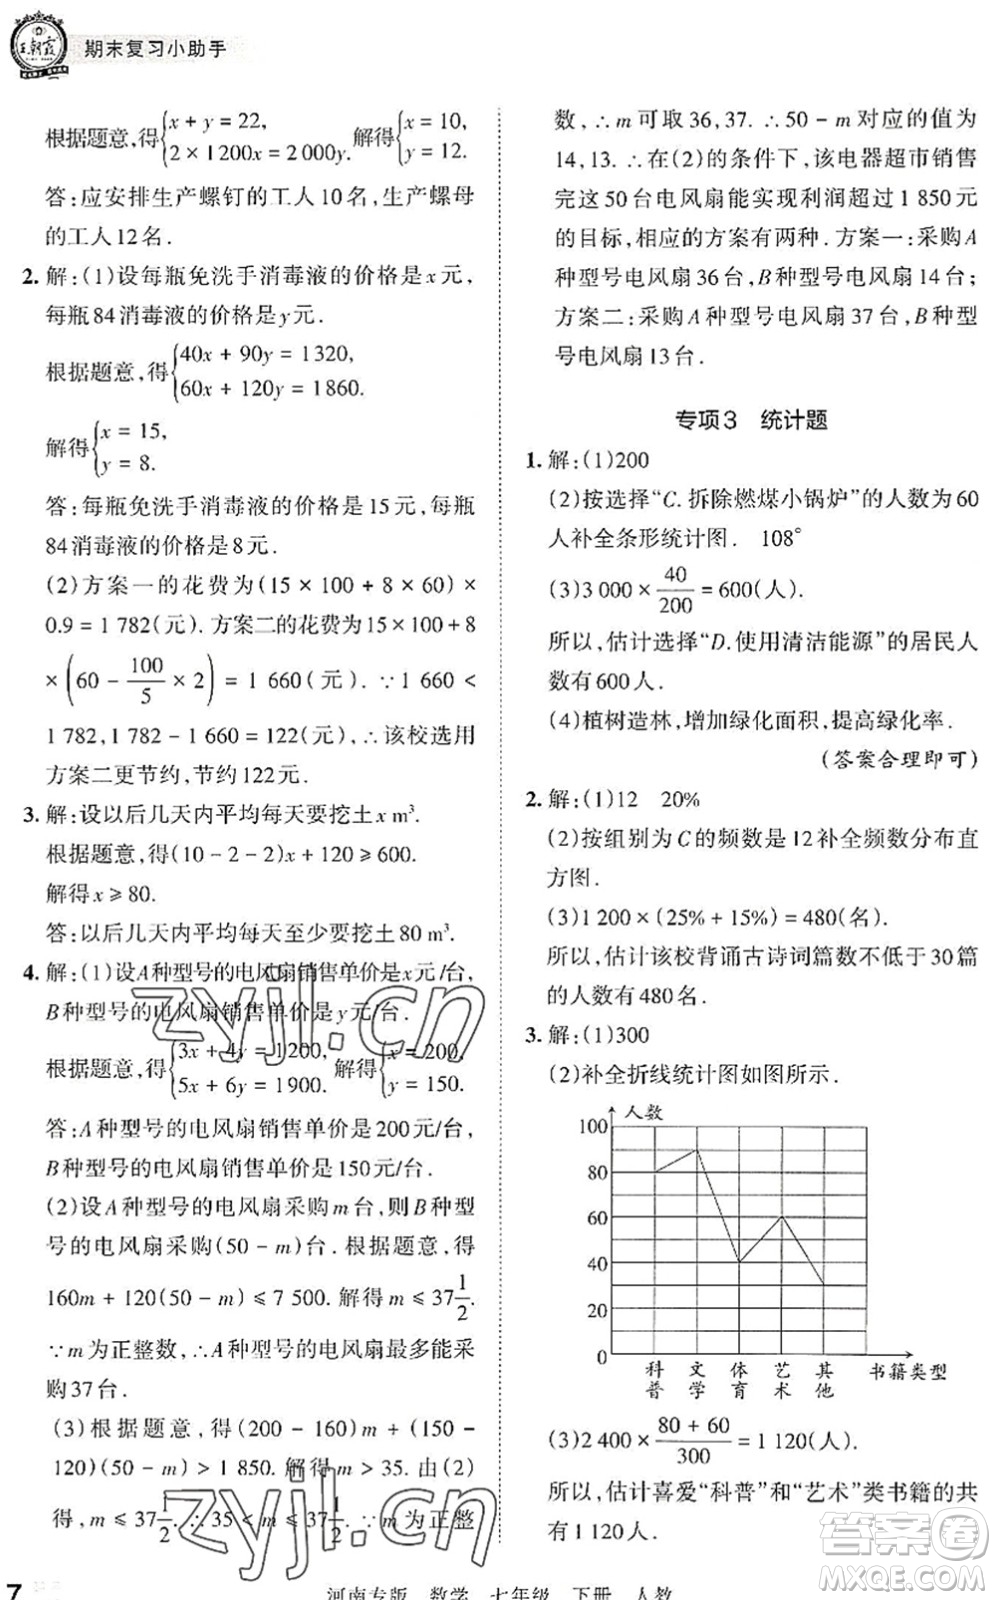 王朝霞
期末复习小助手
根据题意,得{x + y = 22, 2 × 1 200x = 2 000y. 解得{x = 10, y = 12.
答:应安排生产螺钉的工人10名,生产螺母
的工人12名.
2. 解:(1)设每瓶免洗手消毒液的价格是x元,
每瓶84消毒液的价格是y元.
根据题意,得{40x + 90y = 1 320, 60x + 120y = 1 860.
解得{x = 15, y = 8.
答:每瓶免洗手消毒液的价格是15元,每瓶
84消毒液的价格是8元.
(2)方案一的花费为(15 × 100 + 8 × 60) ×
0.9 = 1 782(元). 方案二的花费为15 × 100 + 8
× (60 − 100/5 × 2) = 1 660(元). ∵ 1 660 <
1 782,1 782 − 1 660 = 122(元),∴ 该校选用
方案二更节约,节约122元.
3. 解:设以后几天内平均每天要挖土x m³.
根据题意,得(10 − 2 − 2)x + 120 ≥ 600.
解得x ≥ 80.
答:以后几天内平均每天至少要挖土80 m³.
4. 解:(1)设A种型号的电风扇销售单价是x元/台,
B种型号的电风扇销售单价是y元/台.
根据题意,得{3x + 4y = 1 200, 5x + 6y = 1 900. 解得{x = 200, y = 150.
答:A种型号的电风扇销售单价是200元/台,
B种型号的电风扇销售单价是150元/台.
(2)设A种型号的电风扇采购m台,则B种型
号的电风扇采购(50 − m)台. 根据题意,得
160m + 120(50 − m) ≤ 7 500. 解得m ≤ 37 1/2.
∵ m为正整数,∴ A种型号的电风扇最多能采
购37台.
(3)根据题意,得(200 − 160)m + (150 −
120)(50 − m) > 1 850. 解得m > 35. 由(2)
得,m ≤ 37 1/2. ∴ 35 < m ≤ 37 1/2. ∵ m为正整
数,∴ m可取36,37. ∴ 50 − m对应的值为
14,13. ∴ 在(2)的条件下,该电器超市销售
完这50台电风扇能实现利润超过1 850元
的目标,相应的方案有两种. 方案一:采购A
种型号电风扇36台,B种型号电风扇14台;
方案二:采购A种型号电风扇37台,B种型
号电风扇13台.
专项3 统计题
1. 解:(1)200
(2)按选择“C.拆除燃煤小锅炉”的人数为60
人补全条形统计图. 108°
(3)3 000 × 40/200 = 600(人).
所以,估计选择“D.使用清洁能源”的居民人
数有600人.
(4)植树造林,增加绿化面积,提高绿化率.
(答案合理即可)
2. 解:(1)12 20%
(2)按组别为C的频数是12补全频数分布直
方图.
(3)1 200 × (25% + 15%) = 480(名).
所以,估计该校背诵古诗词篇数不低于30篇
的人数有480名.
3. 解:(1)300
(2)补全折线统计图如图所示.
人数
100
80
60
40
20
0
科普 文学 体育 艺术 其他 书籍类型
(3)2 400 × (80 + 60)/300 = 1 120(人).
所以,估计喜爱“科普”和“艺术”类书籍的共
有1 120人.
7
河南专版 数学 七年级 下册 人教
zyjl.cn
zyjl.cn
答案圈
MXQE.COM